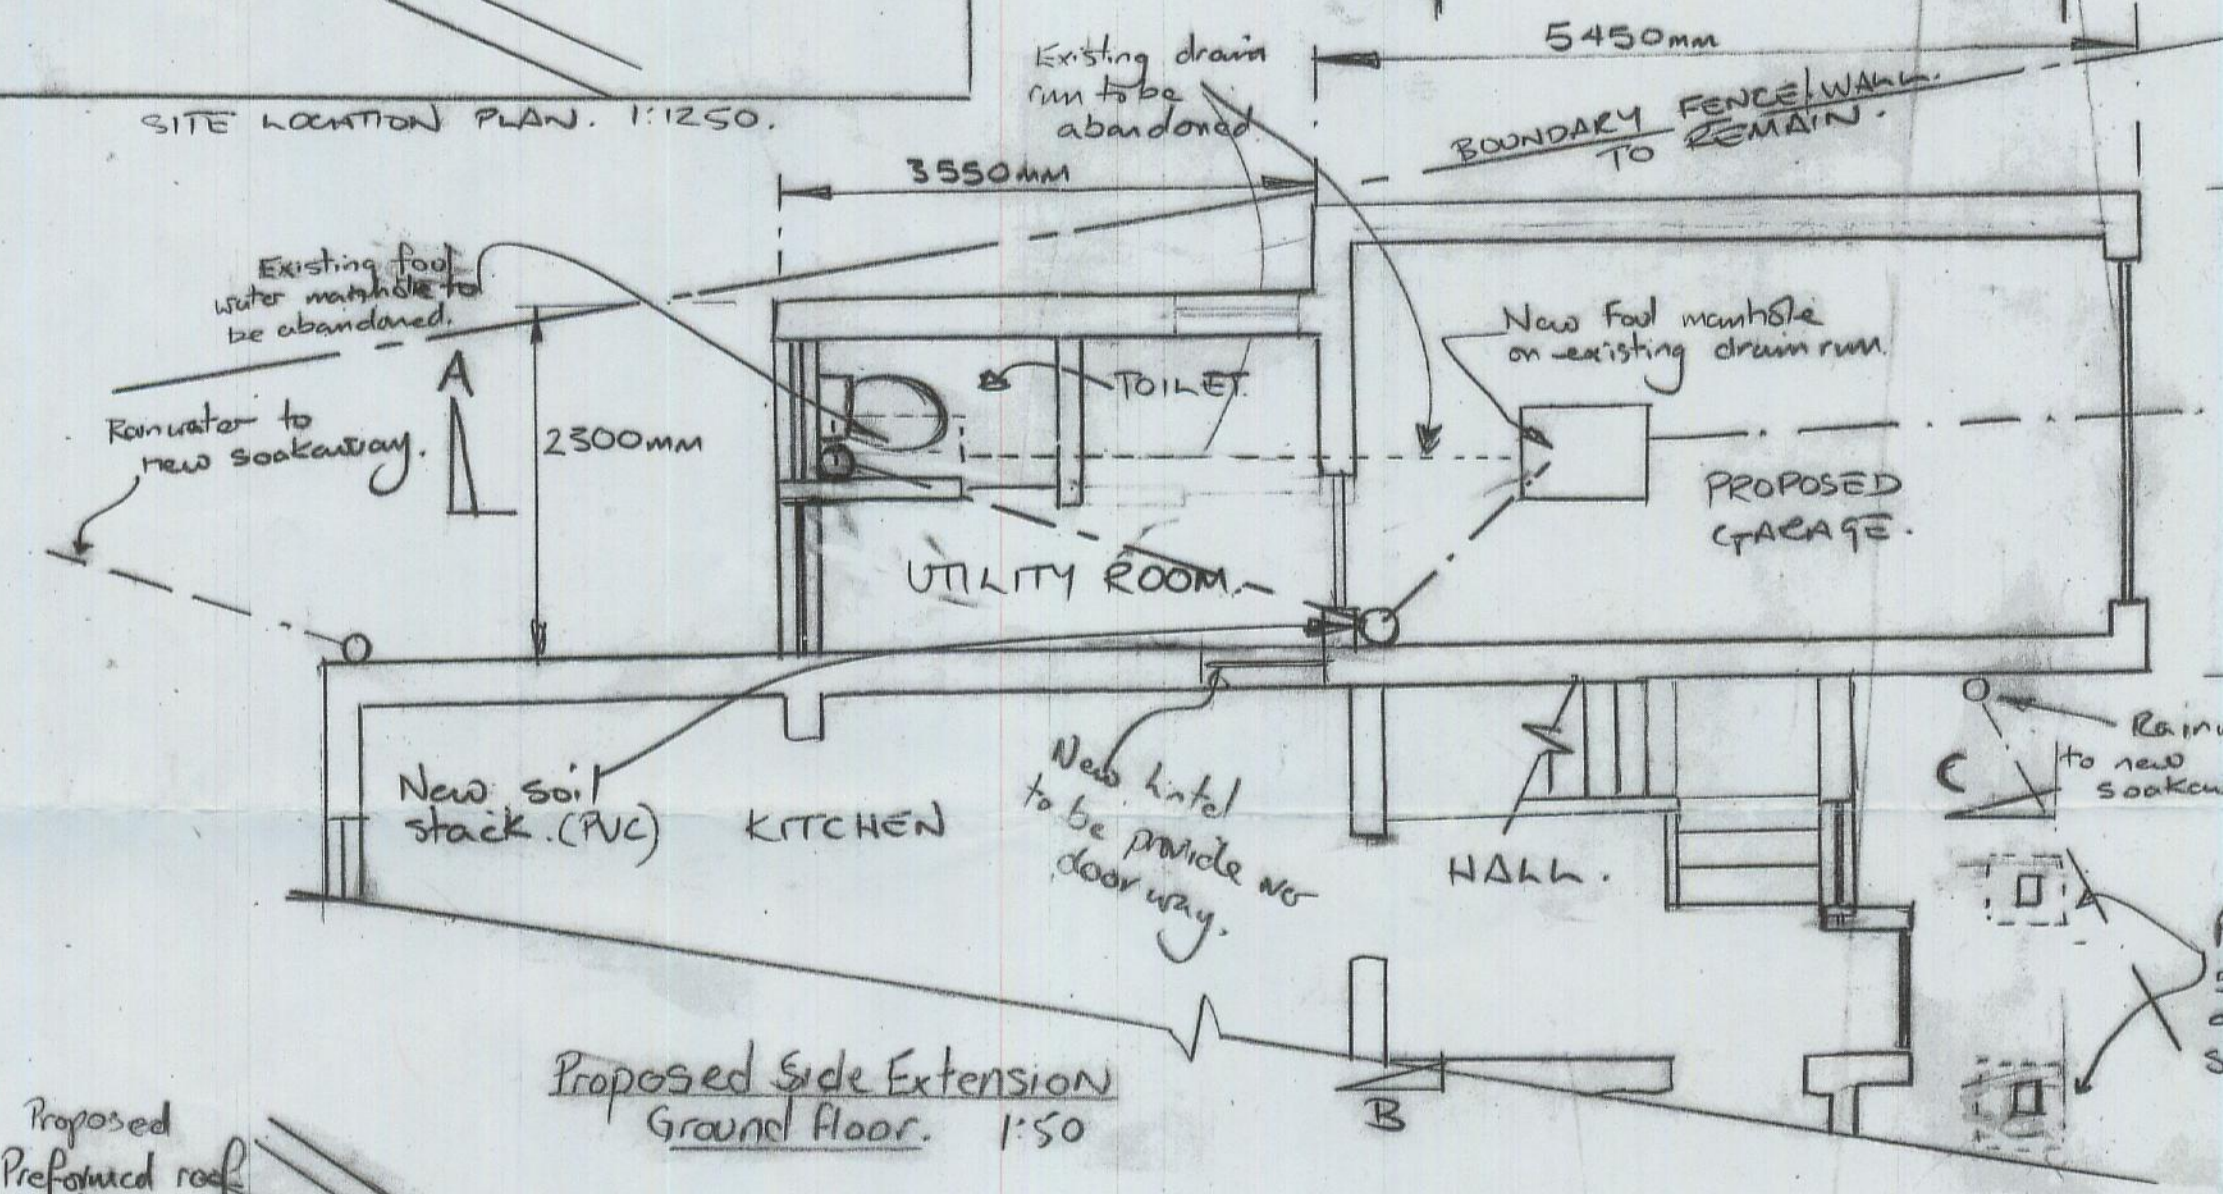 SITE LOCATION PLAN. 1:1250.
Existing drain
run to be
abandoned
5450mm
BOUNDARY FENCE/WALL.
TO REMAIN.
3550mm
Existing foul
water manhole to
be abandoned.
A
Rainwater to
new soakaway.
2300mm
TOILET.
New Foul manhole
on existing drain run.
PROPOSED
GARAGE.
UTILITY ROOM.
New soil
stack. (PVC)
KITCHEN
New Lintel
to be provide
door way.
HALL.
C
to new
B
Proposed Side Extension
Ground floor. 1:50
Proposed
Preformed roof